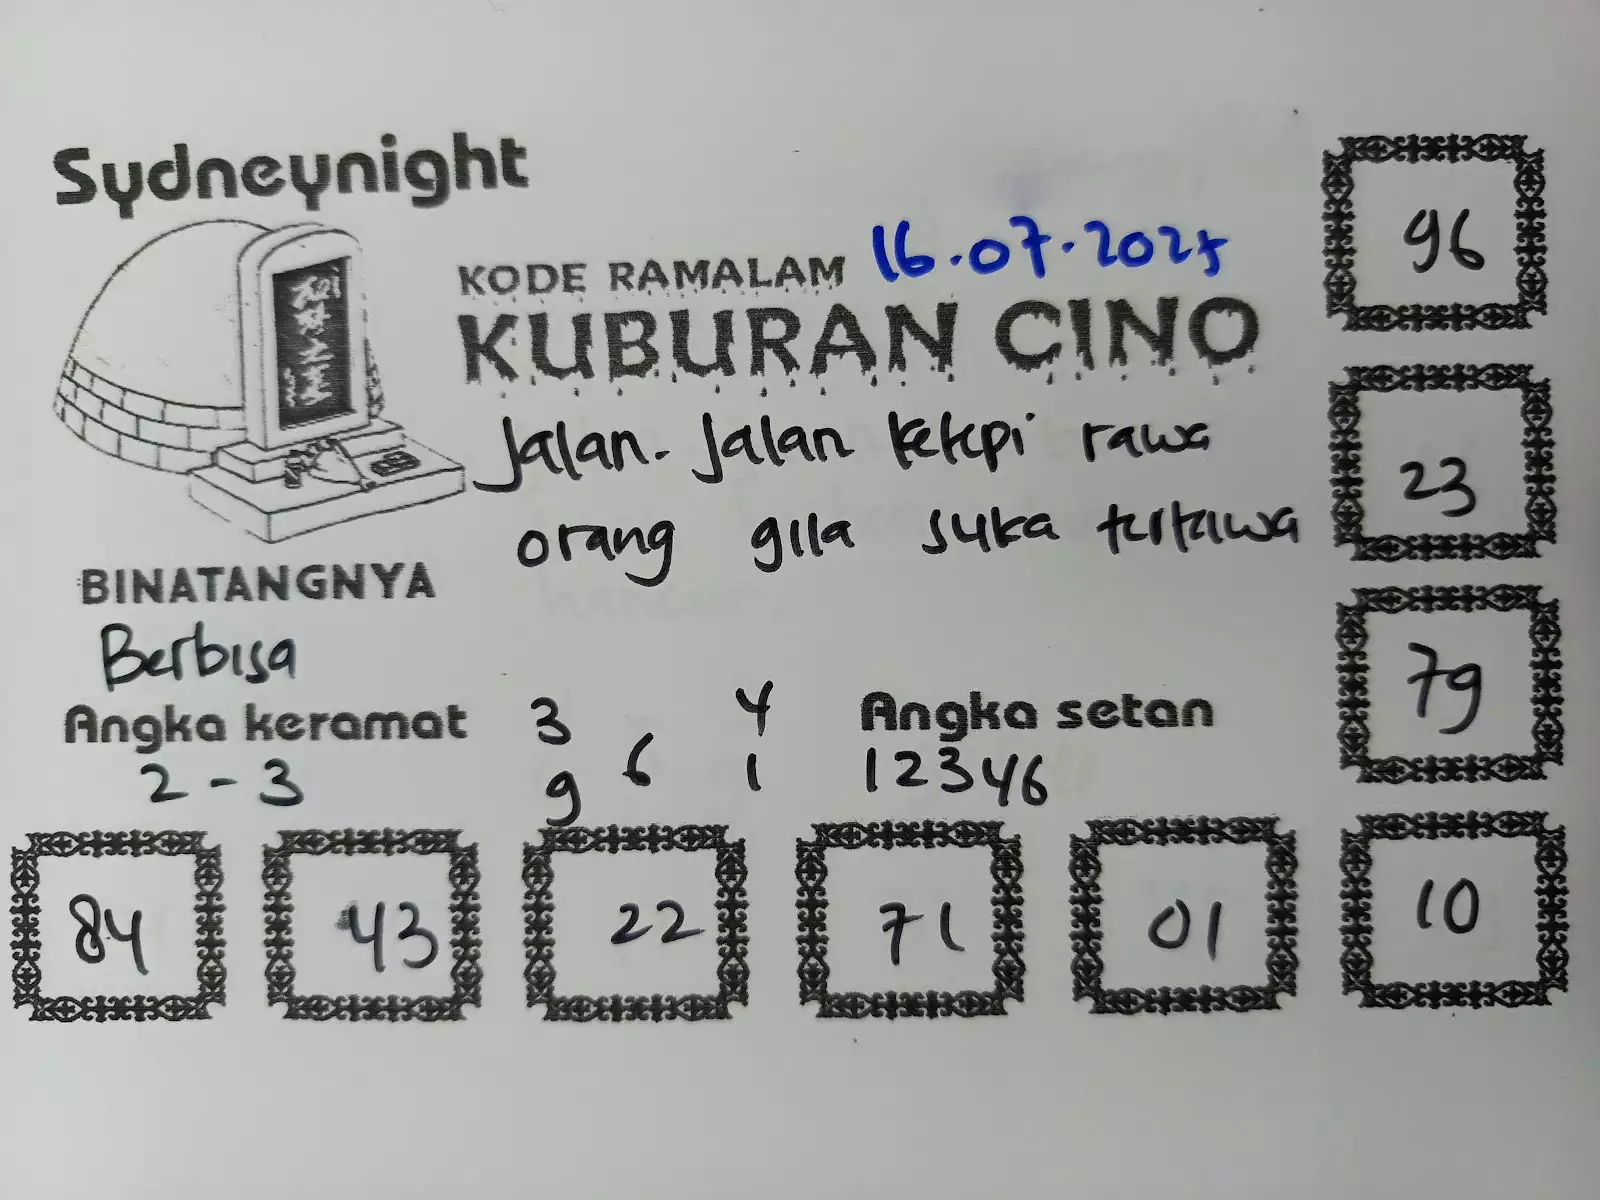 Sydneynight
KODE RAMALAM 16.07.2025
KUBURAN CINO
Jalan-Jalan ketepi rawa
orang gila suka tertawa
BINATANGNYA
Berbisa
Angka keramat
2 - 3
3 4
6
9 1
Angka setan
12346
96
23
79
84 43 22 71 01 10